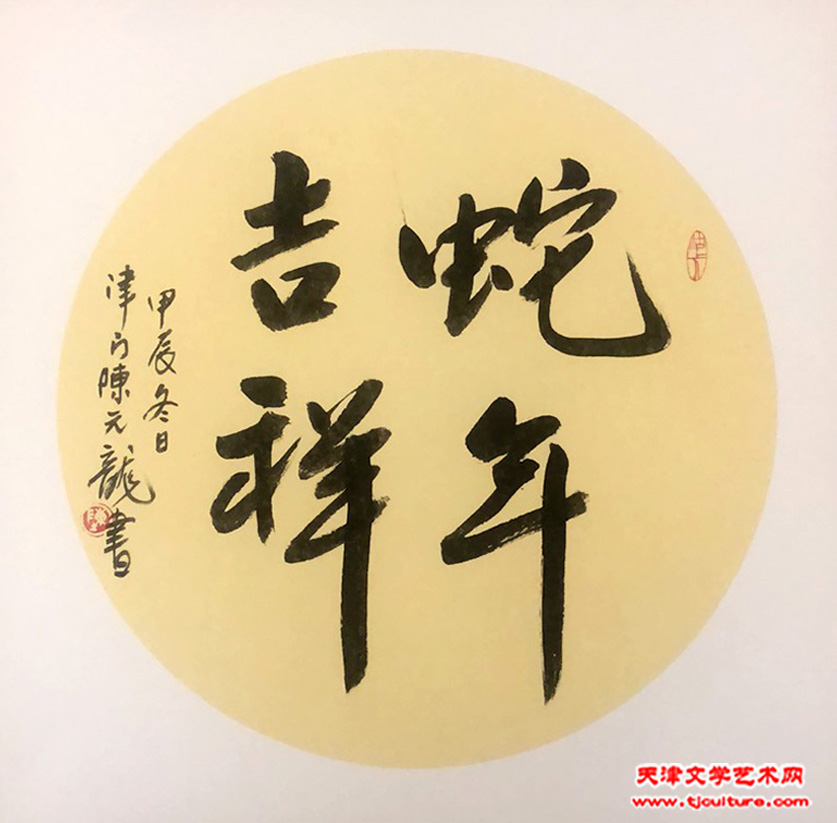 蛇年
吉祥
甲辰冬日
津门陳元龍書
天津文学艺术网
www.tjculture.com